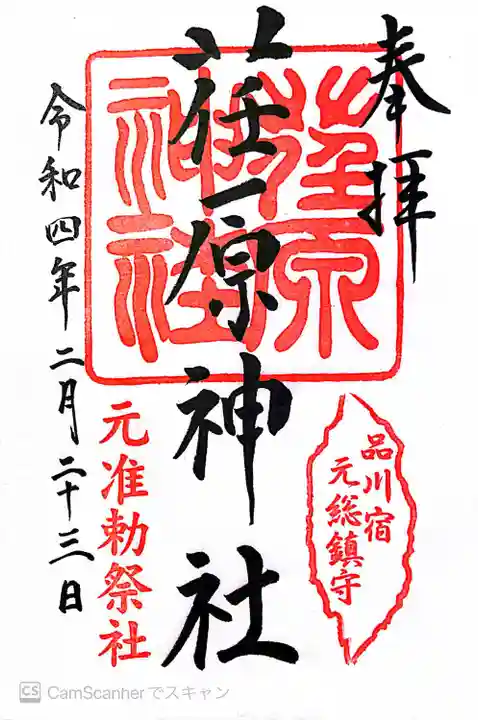 奉拝
荏原神社
令和四年二月二十三日
元准勅祭社
品川宿
元総鎮守
CS CamScannerでスキャン